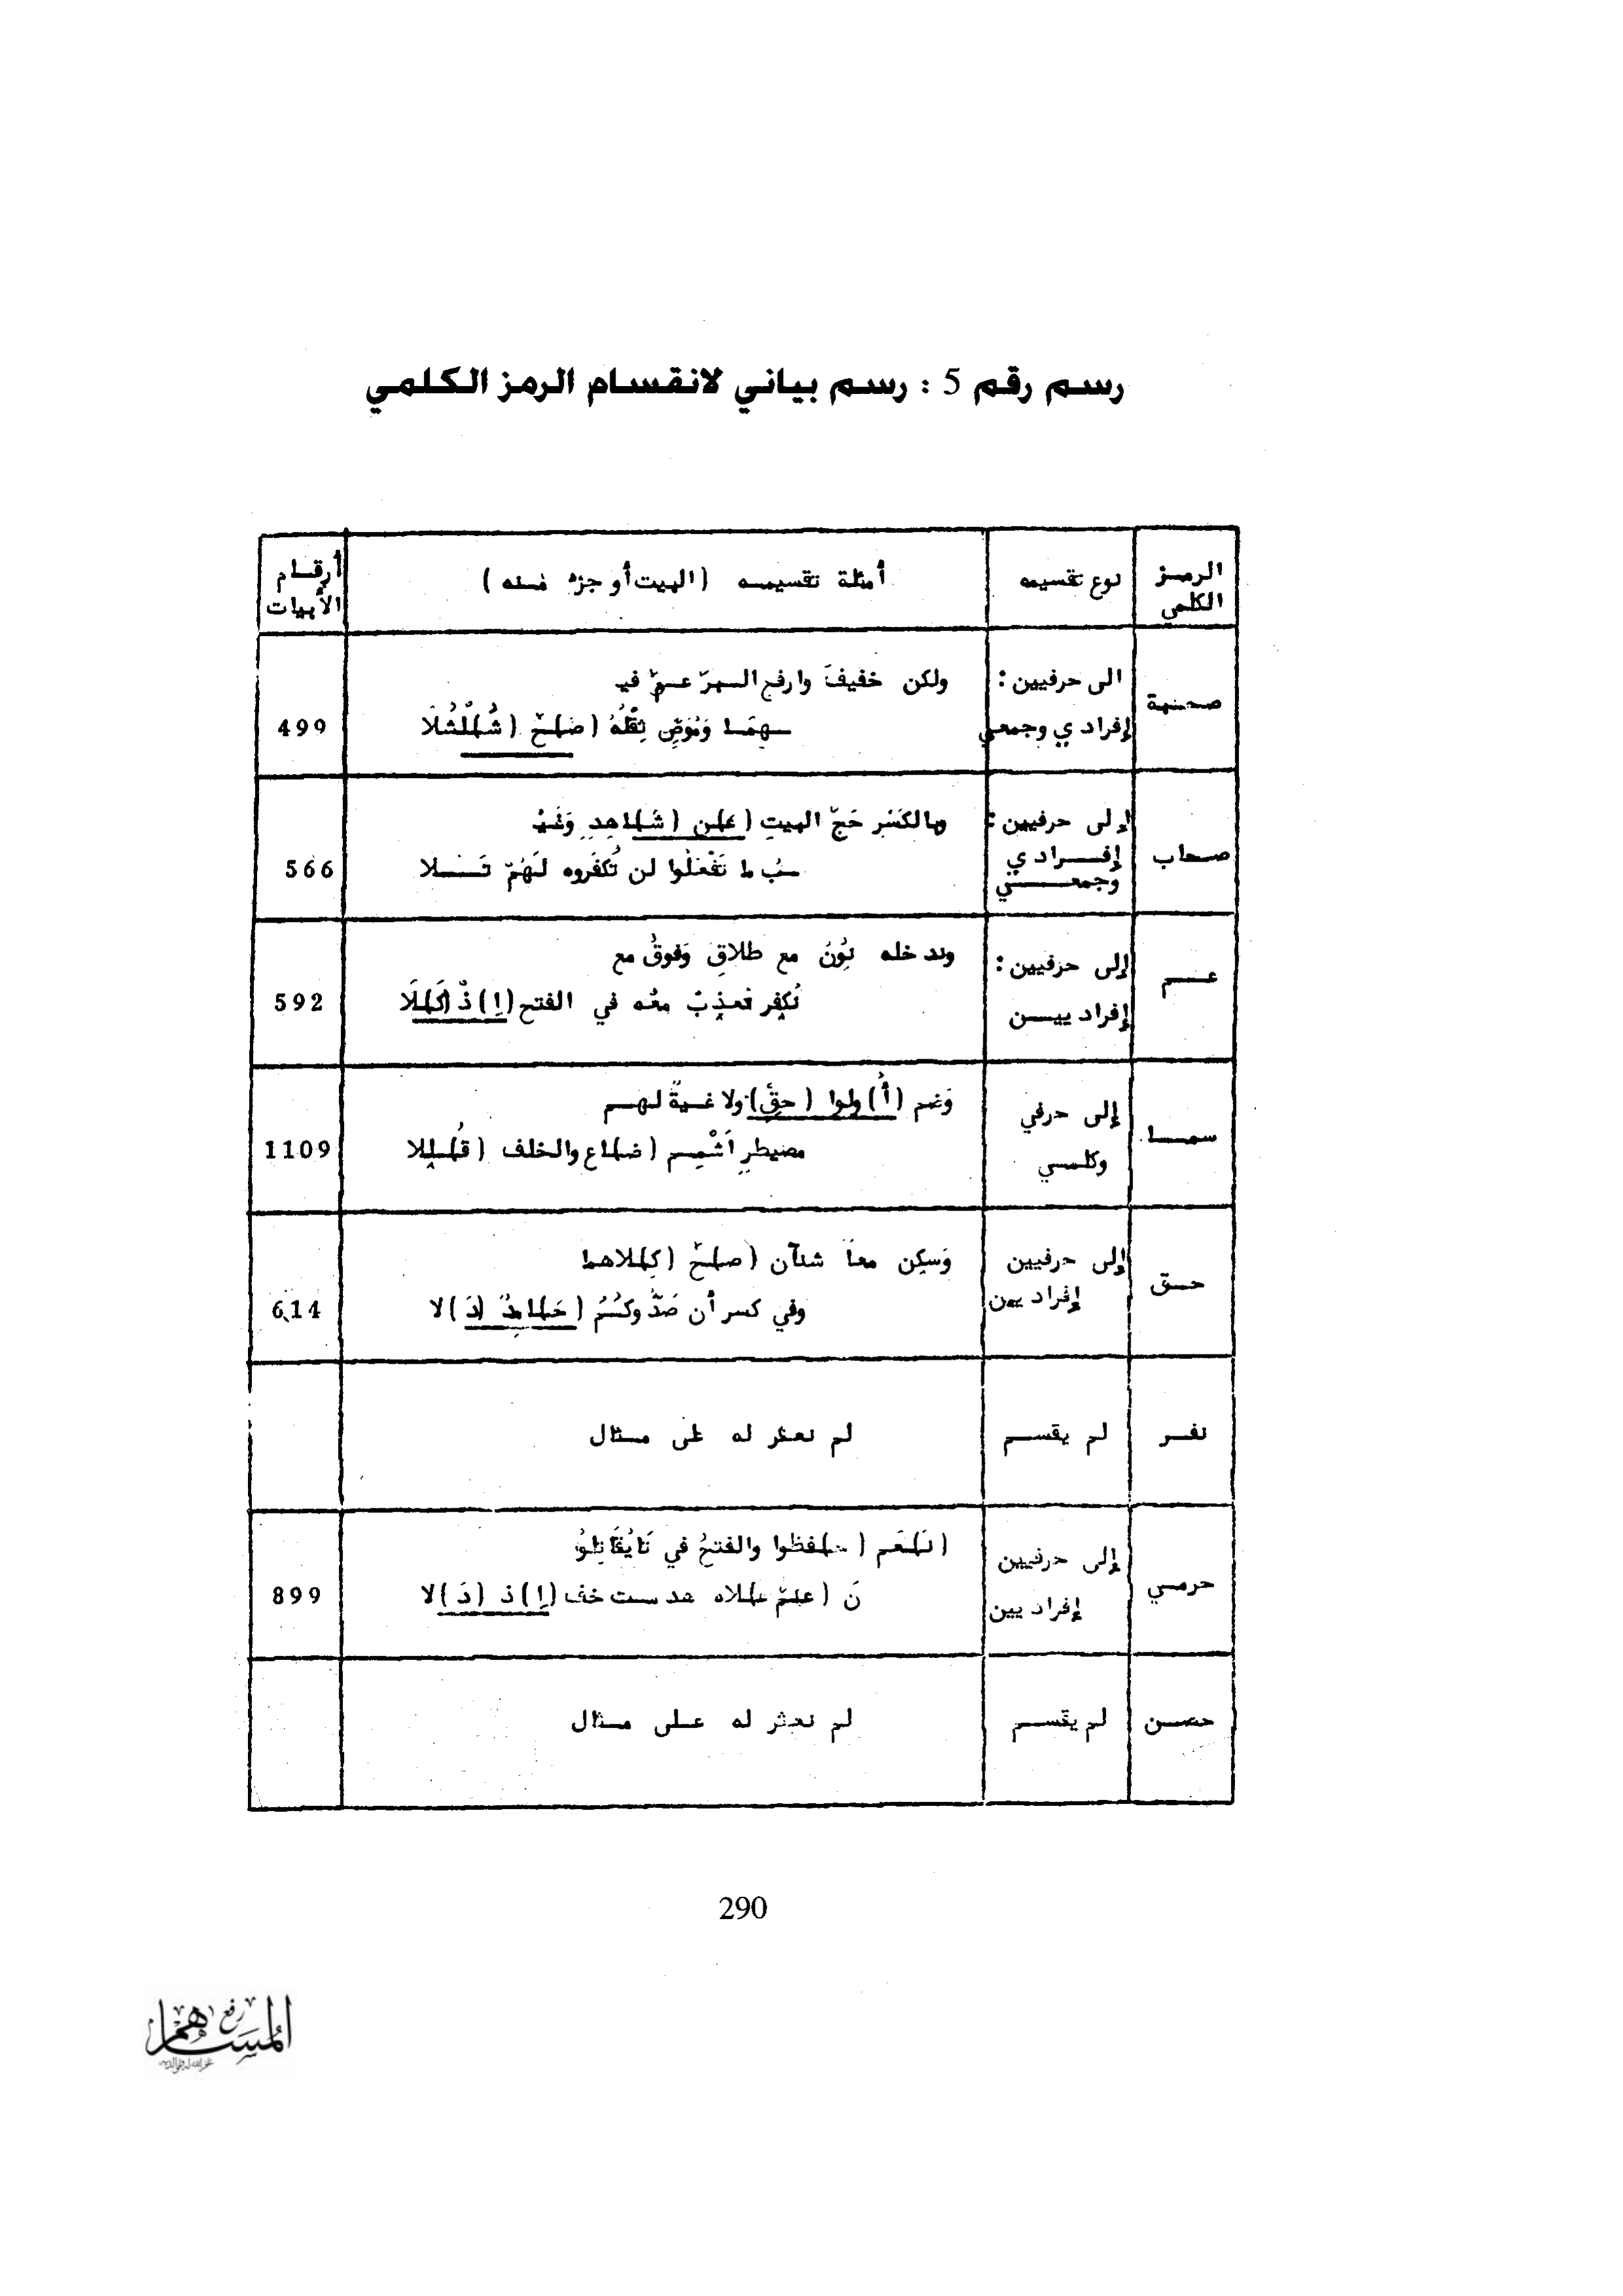 رسم رقم 5 : رسم بياني لانقسام الرمز الكلمي
الرمز الكلمي
نوع تقسيمه
أمثلة تقسيمه (البيت أو جزء منه)
أرقام الأبيات
صحبة
الى حرفيين :
إفرادي وجمعي
ولكن خفيفَ وارفع البرّ عمّ في
ـهِمَا وَمُوَصٍّ ثِقْلُهُ (صَـ)ـحَّ (شُـ)ـلْشُلَا
499
صحاب
إلى حرفيين :
إفرادي
وجمعي
وبالكَسْرِ حَجّ البيتِ (عـ)ـن (شَـ)ـاهِدٍ وَغَيْـ
ـبُ ما تَفْعَلُوا لن تُكفَروه لَهُمْ تَلا
566
عم
إلى حرفيين :
إفراديين
وندخله نُونٌ مع طلاقٍ وَفوقُ مع
نُكفِر نعذِبْ معْه في الفتح (إِ)ذْ (كَـ)ـلَا
592
سما
إلى حرفي
وكلمي
وَضم (أُ)ولوا (حقٍّ) ولا غيةٌ لهم
مصيطرٍ أشْمِم (ضـ)ـاع والخلف (قُـ)ـلِلا
1109
حق
إلى حرفيين
إفراديين
وَسكِن معاً شنآن (صـ)ـحّ (كِـ)ـلاهما
وفي كسر أن صَدُّوكُمُ (حَـ)ـامِدٌ (دَ)لا
614
نفر
لم يقسم
لم نعثر له على مثال
حرمي
إلى حرفيين
إفراديين
(نَـ)ـعَم (حـ)ـفظوا والفتحُ في تَا يُقَاتِلُو
نَ (عـ)ـمّ عـلاه هدمت خف (إِ)ذ (دَ)لا
899
حصن
لم يقسم
لم نعثر له على مثال
290
رفع
المساهم
غفر الله له ولوالديه